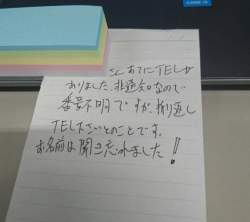 さんあてにTELが
ありました。非通知なので
番号不明ですが、折り返し
TEL下さいとのことです。
お名前は聞き忘れました!